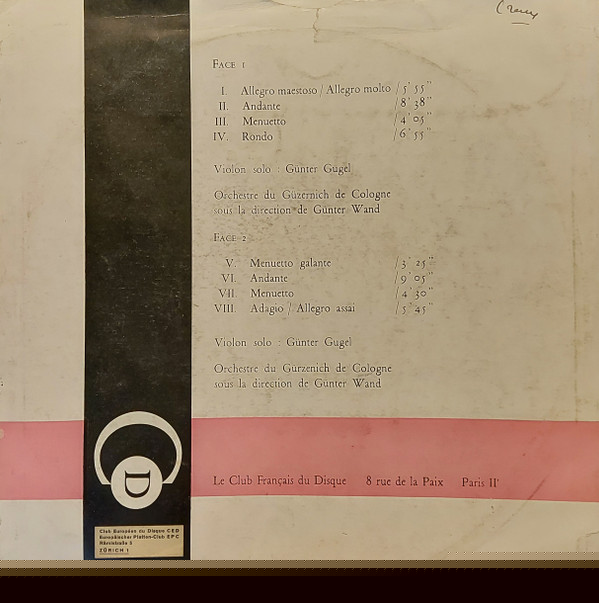 FACE 1
I. Allegro maestoso / Allegro molto / 5' 55"
II. Andante / 8' 38"
III. Menuetto / 4' 05"
IV. Rondo / 6' 55"
Violon solo : Günter Gugel
Orchestre du Güzernich de Cologne
sous la direction de Günter Wand
FACE 2
V. Menuetto galante / 3' 25"
VI. Andante / 9' 05"
VII. Menuetto / 4' 30"
VIII. Adagio / Allegro assai / 5' 45"
Violon solo : Günter Gugel
Orchestre du Gürzenich de Cologne
sous la direction de Günter Wand
D
Le Club Français du Disque 8 rue de la Paix Paris IIe
Club Européen du Disque CED
Europäischer Platten-Club EPC
Rämistraße 5
ZÜRICH 1